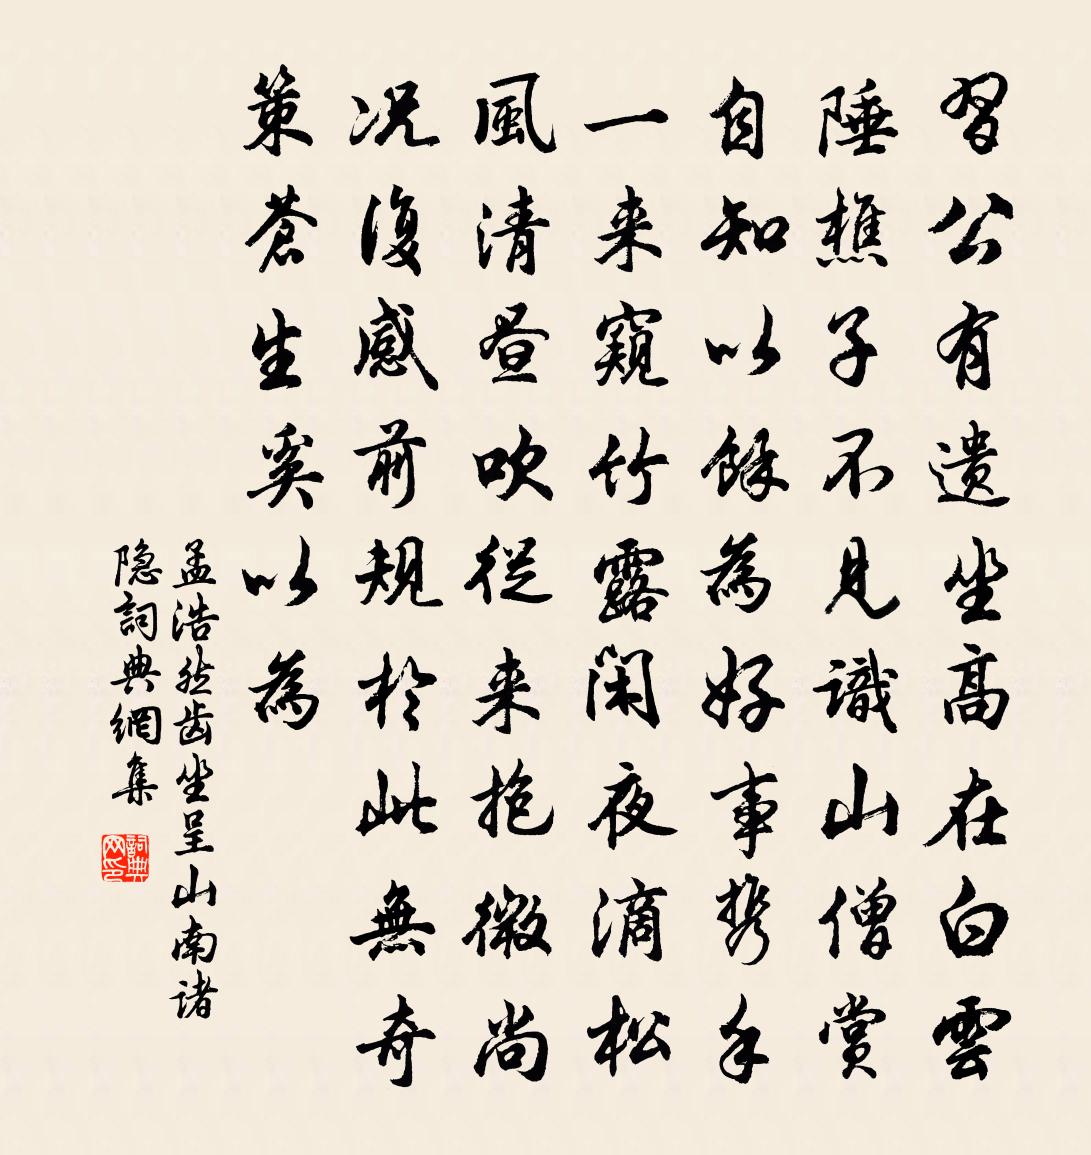 習公有遺坐高在白雲
陲樵子不見識山僧賞
自知以餘為好事携手
一来窺竹露閑夜滴松
風清昼吹從来抱微尚
况復感前規於此無奇
策蒼生奚以為
孟浩然齿坐呈山南诸
隐詞典網集
詞典
网印